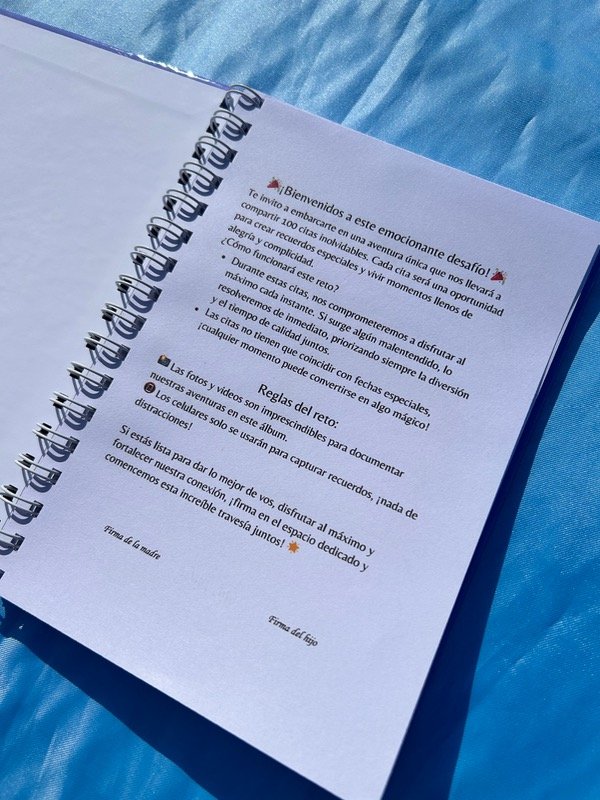 🎉¡Bienvenidos a este emocionante desafío!🎉
Te invito a embarcarte en una aventura única que nos llevará a
compartir 100 citas inolvidables. Cada cita será una oportunidad
para crear recuerdos especiales y vivir momentos llenos de
alegría y complicidad.
¿Cómo funcionará este reto?
• Durante estas citas, nos comprometeremos a disfrutar al
máximo cada instante. Si surge algún malentendido, lo
resolveremos de inmediato, priorizando siempre la diversión
y el tiempo de calidad juntos.
• Las citas no tienen que coincidir con fechas especiales,
¡cualquier momento puede convertirse en algo mágico!
Reglas del reto:
📸Las fotos y vídeos son imprescindibles para documentar
nuestras aventuras en este álbum.
📵Los celulares solo se usarán para capturar recuerdos, ¡nada de
distracciones!
Si estás lista para dar lo mejor de vos, disfrutar al máximo y
fortalecer nuestra conexión, ¡firma en el espacio dedicado y
comencemos esta increíble travesía juntos! 🌟
Firma de la madre
Firma del hijo